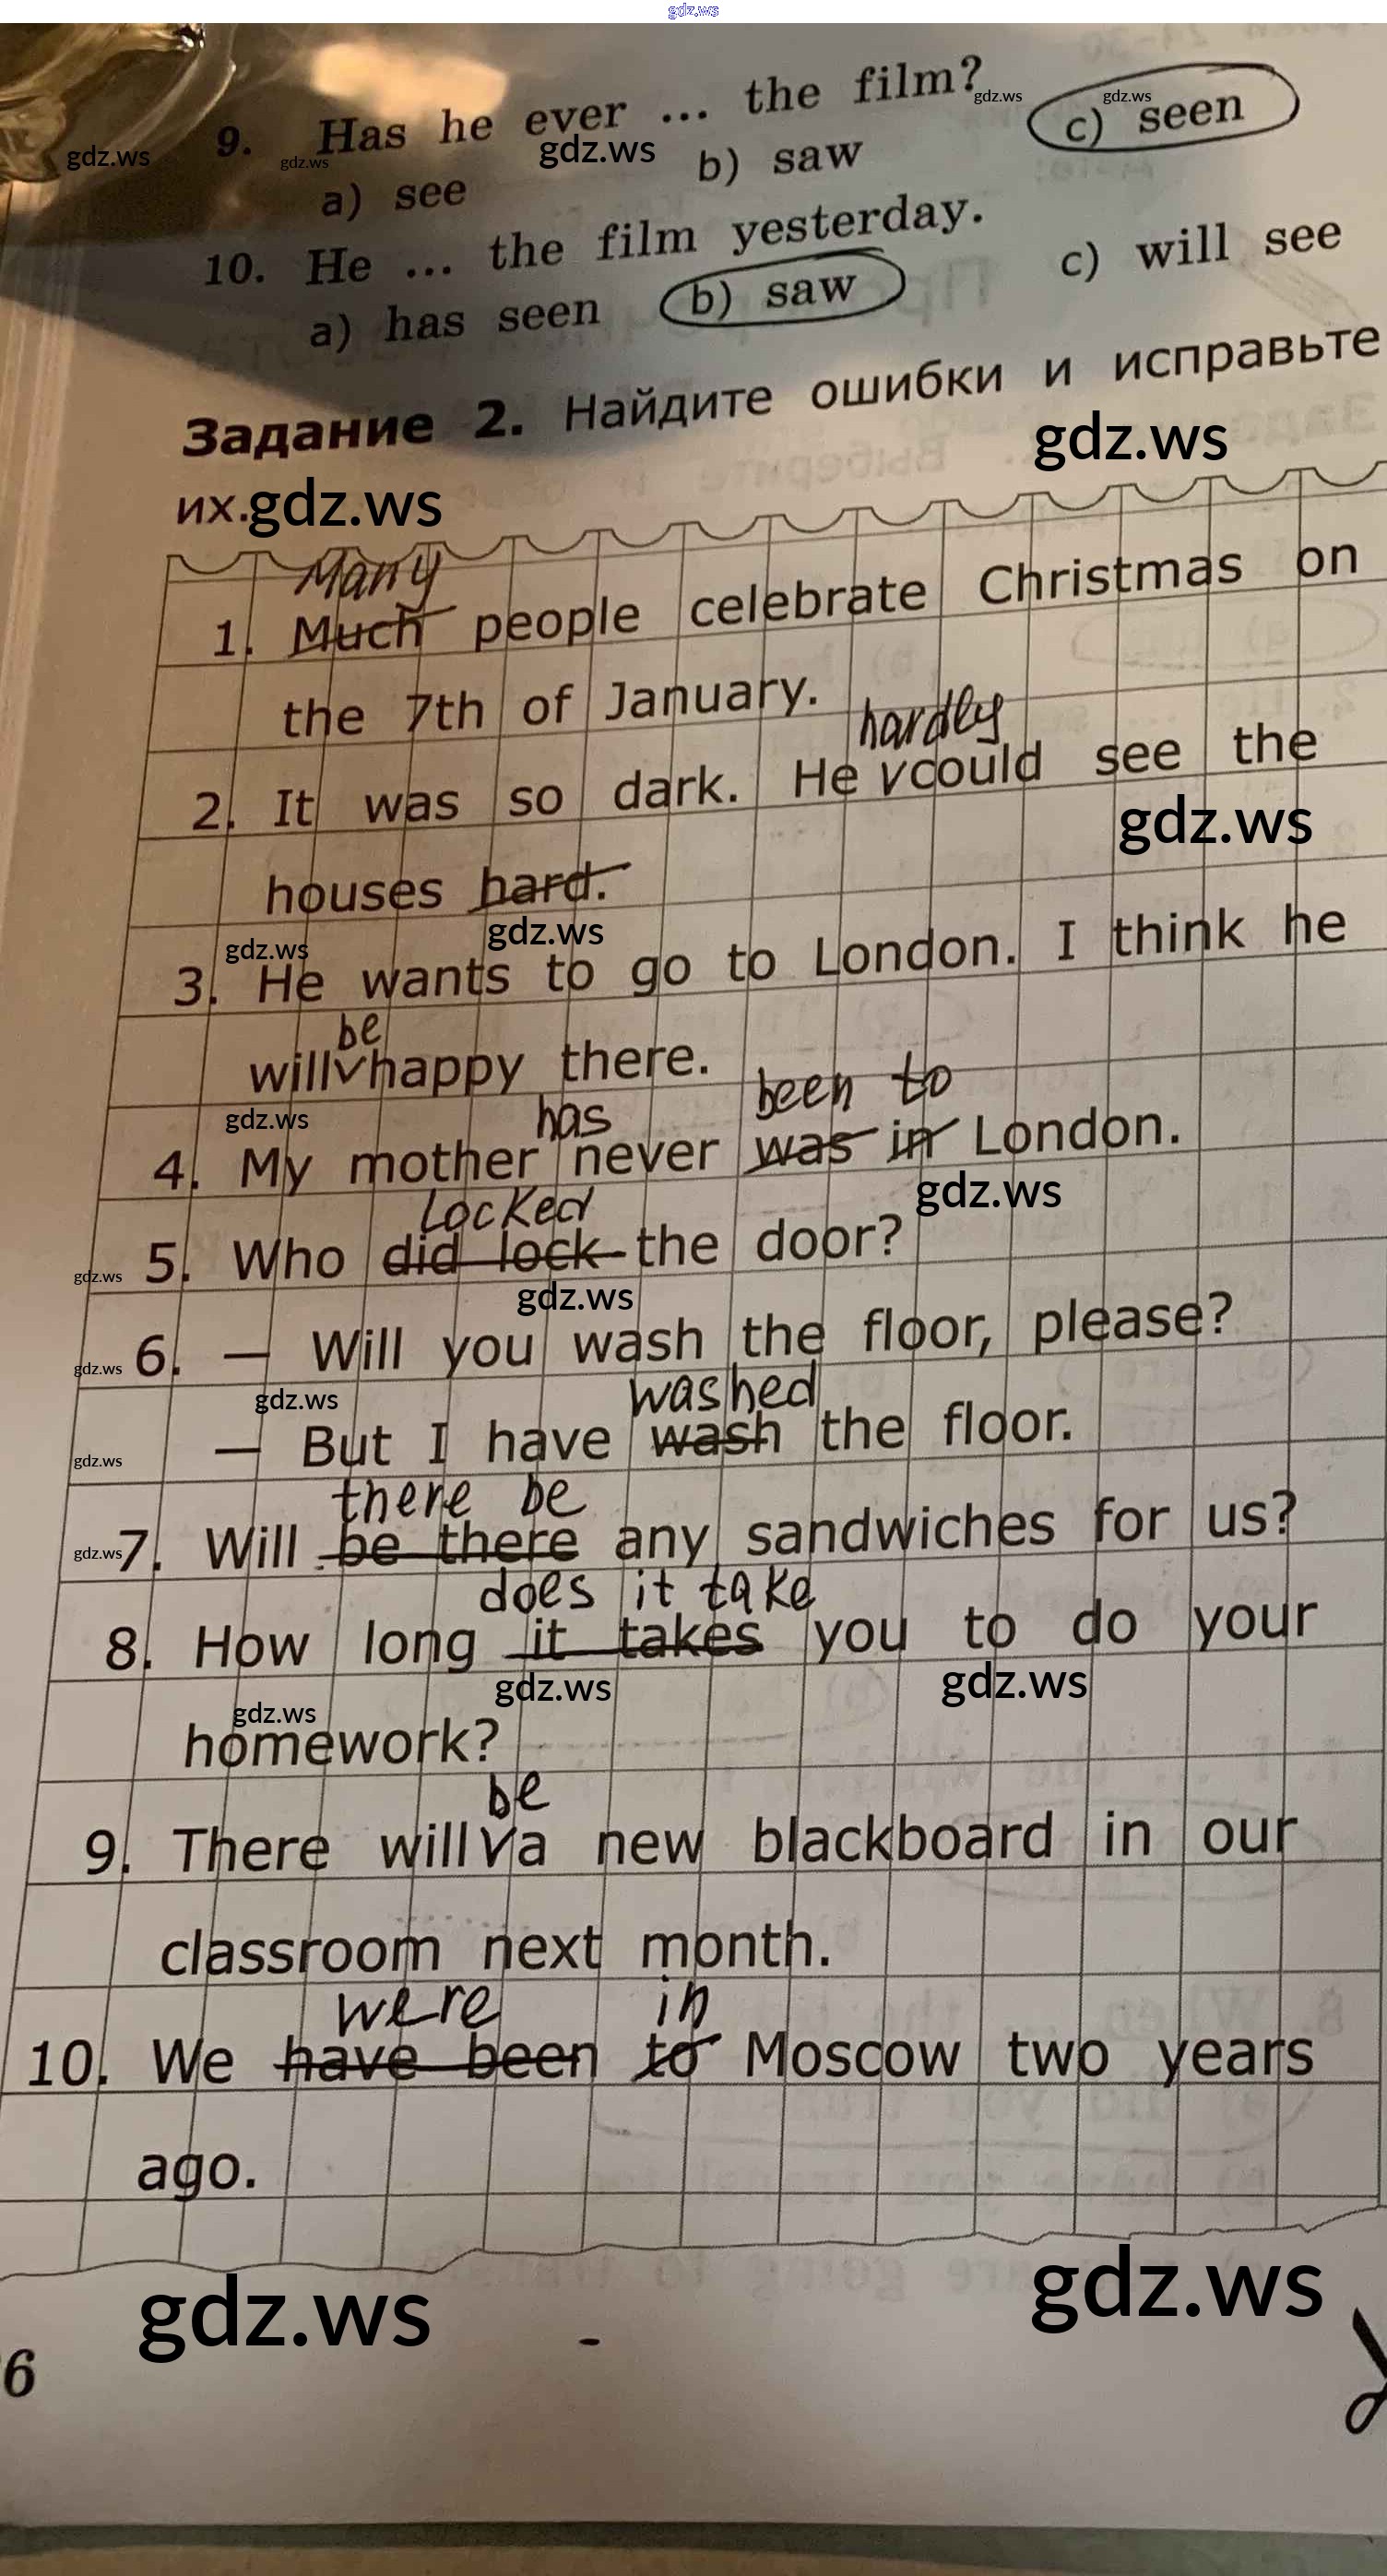 gdz.ws
9. Has he ever ... the film?
a) see b) saw c) seen
10. He ... the film yesterday.
a) has seen b) saw c) will see
Задание 2. Найдите ошибки и исправьте
их.
Many
1. Much people celebrate Christmas on
the 7th of January.
hardly
2. It was so dark. He V could see the
houses hard.
3. He wants to go to London. I think he
be
will V happy there.
has been to
4. My mother never was in London.
Locked
5. Who did lock the door?
6. — Will you wash the floor, please?
washed
— But I have wash the floor.
there be
7. Will be there any sandwiches for us?
does it take
8. How long it takes you to do your
homework?
be
9. There will V a new blackboard in our
classroom next month.
were in
10. We have been to Moscow two years
ago.
gdz.ws
gdz.ws
6